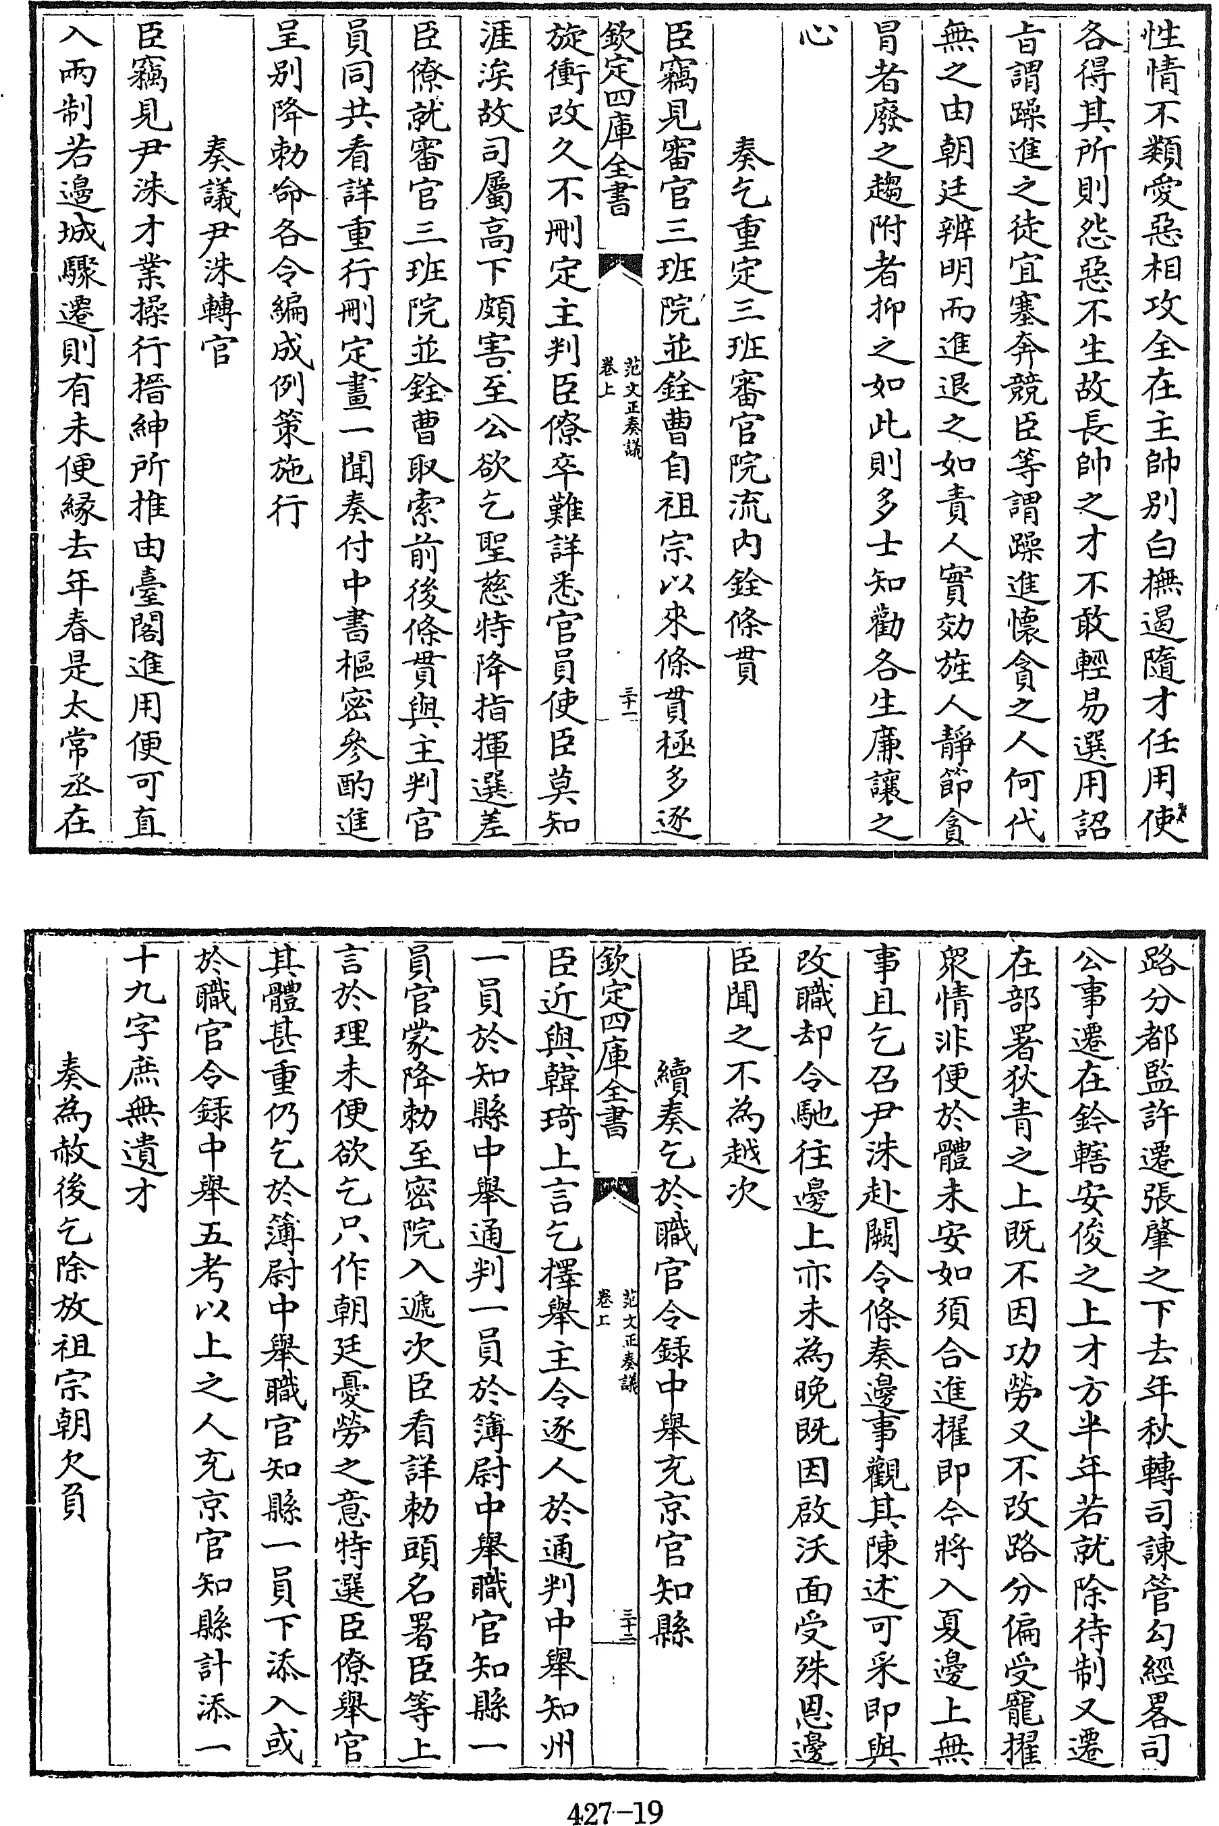 性情不類愛惡相攻全在主帥別白撫遏隨才任用使
各得其所則怨惡不生故長帥之才不敢輕易選用詔
旨謂躁進之徒宜塞奔競臣等謂躁進懷貪之人何代
無之由朝廷辨明而進退之如責人實効旌人靜節貪
冒者廢之趨附者抑之如此則多士知勸各生廉讓之
心
奏乞重定三班審官院流內銓條貫
臣竊見審官三班院並銓曹自祖宗以來條貫極多逐
欽定四庫全書
范文正奏議
卷上
三十一
旋衝改久不刪定主判臣僚卒難詳悉官員使臣莫知
涯涘故司屬高下頗害至公欲乞聖慈特降指揮選差
臣僚就審官三班院並銓曹取索前後條貫與主判官
員同共看詳重行刪定畫一聞奏付中書樞密參酌進
呈別降勅命各令編成例策施行
奏議尹洙轉官
臣竊見尹洙才業操行搢紳所推由臺閣進用便可直
入兩制若邊城驟遷則有未便緣去年春是太常丞在
路分都監許遷張肇之下去年秋轉司諫管勾經畧司
公事遷在鈐轄安俊之上才方半年若就除待制又遷
在部署狄青之上既不因功勞又不改路分偏受寵擢
衆情非便於體未安如須合進擢即今將入夏邊上無
事且乞召尹洙赴闕令條奏邊事觀其陳述可采即與
改職却令馳往邊上亦未為晚既因啟沃面受殊恩邊
臣聞之不為越次
續奏乞於職官令録中舉充京官知縣
欽定四庫全書
范文正奏議
卷上
三十二
臣近與韓琦上言乞擇舉主令逐人於通判中舉知州
一員於知縣中舉通判一員於簿尉中舉職官知縣一
員官蒙降勅至密院入遞次臣看詳勅頭名署臣等上
言於理未便欲乞只作朝廷憂勞之意特選臣僚舉官
其體甚重仍乞於簿尉中舉職官知縣一員下添入或
於職官令録中舉五考以上之人充京官知縣計添一
十九字庶無遺才
奏為赦後乞除放祖宗朝欠負
427-19